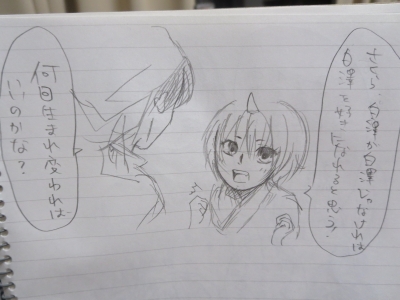 さくら、白澤が白澤じゃなければ
白澤を好きになれると思う?
何回生まれ変われば
いいのかな?